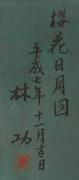 櫻花日月図
平成七年十一月吉日
林功